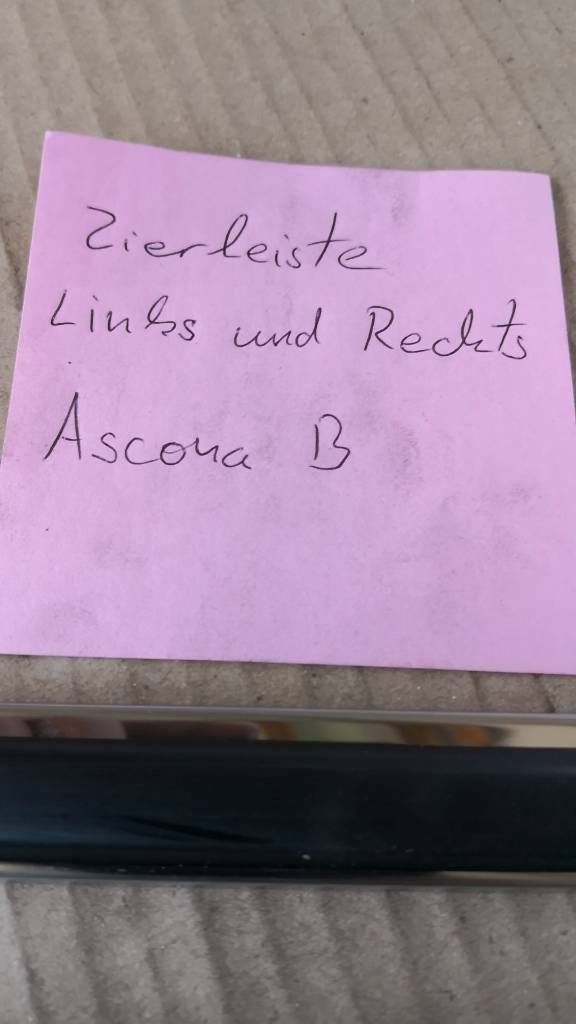 Zierleiste
Links und Rechts
Ascona B